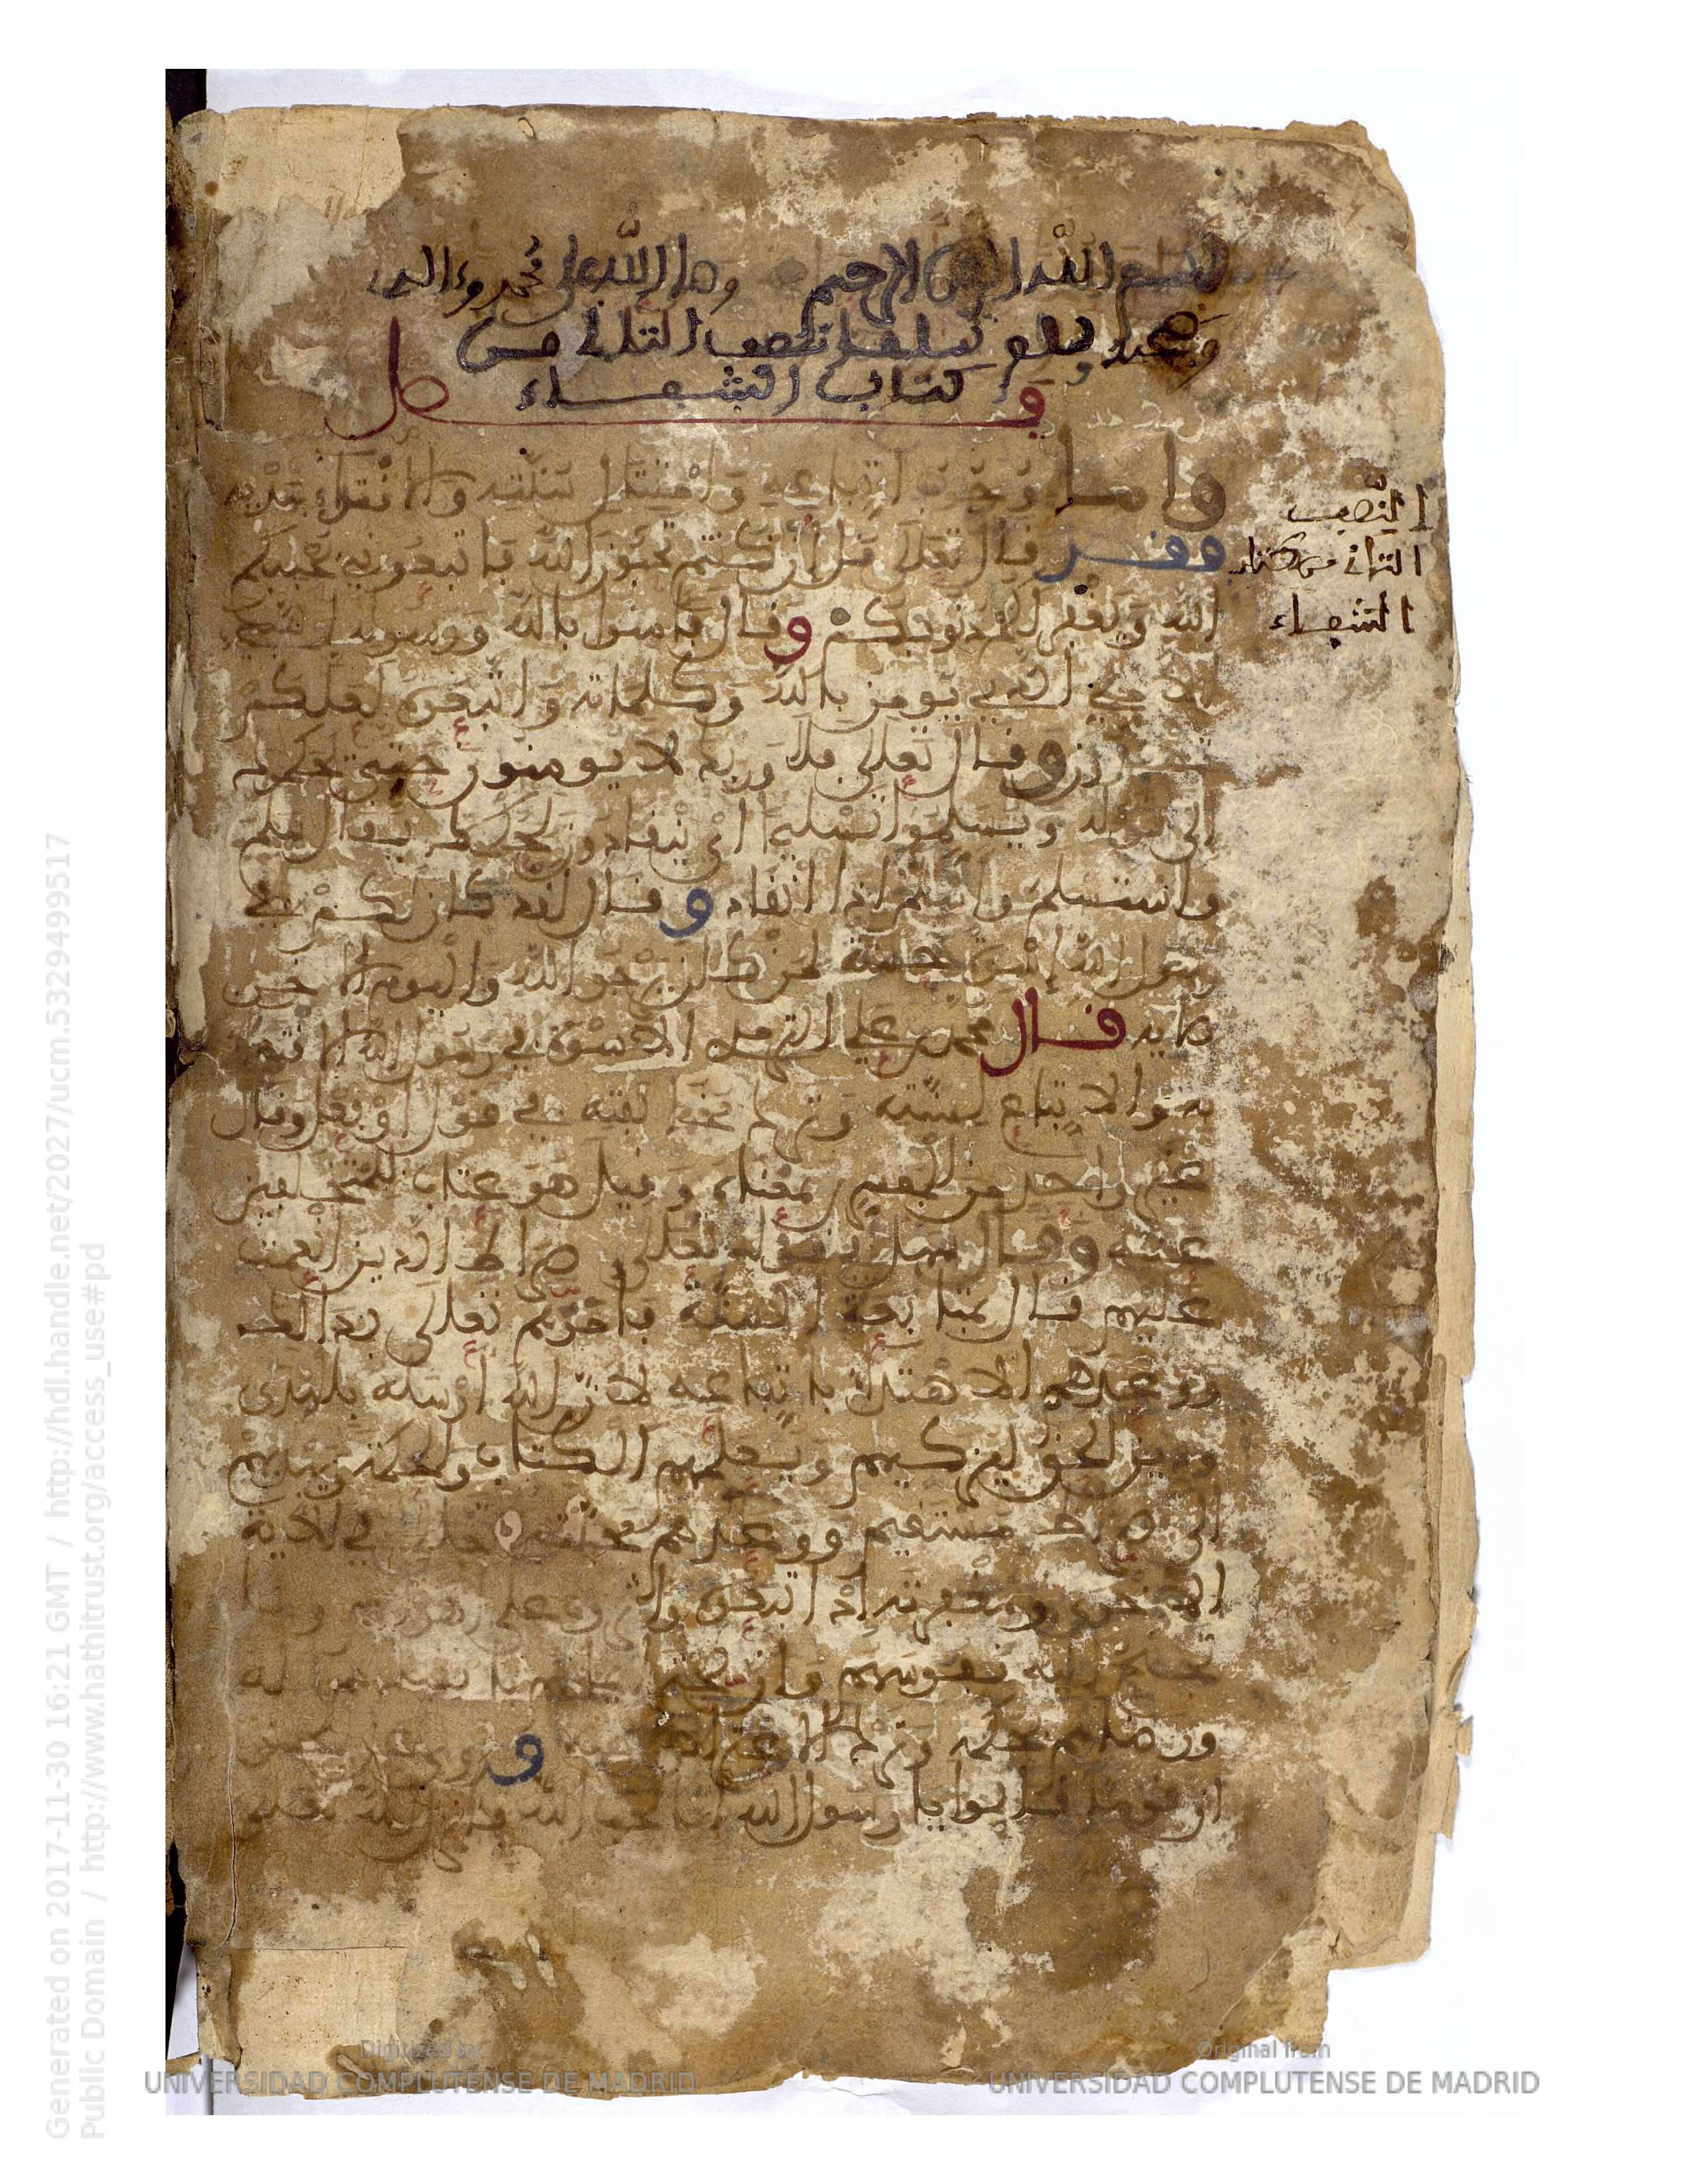 بسم الله الرحمن الرحيم وصلى الله على محمد وءاله
وصحبه وسلم تسليما النصف الثاني من
كتاب الشفاء
فصل
وأما وجوب اتباعه وامتثال سنته والاقتداء بهديه
فقد قال تعالى قل إن كنتم تحبون الله فاتبعوني يحببكم
الله ويغفر لكم ذنوبكم وقال فآمنوا بالله ورسوله النبي
الامي الذي يومن بالله وكلماته واتبعوه لعلكم
تهتدون وقال تعالى فلا وربك لا يومنون حتى يحكموك
الى قوله ويسلموا تسليما أي ينقادون لحكمك يقال سلم
واستسلم وأسلم اذا انقاد وقال لقد كان لكم في
رسول الله إسوة حسنة لمن كان يرجو الله واليوم الاخر
الاية قال محمد بن علي الترمذي الاسوة في رسول الله الاقتداء
به والاتباع لسنته وترك مخالفته في قول أو فعل وقال
غير واحد من المفسرين بمعناه وقيل هو عتاب للمتخلفين
عنه وقال سهل في قوله تعالى صراط الذين أنعمت
عليهم قال بمتابعة السنة فأمرهم تعالى بذالك
ووعدهم الاهتداء باتباعه لان الله أرسله بالهدى
ودين الحق ليزكيهم ويعلمهم الكتاب والحكمة ويهديهم
الى صراط مستقيم ووعدهم محبته تعالى في الاية
الاخرى ومغفرته إذا اتبعوه وآثروه على أهوائهم وما
تجنح إليه نفوسهم وأن صحة إيمانهم بانقيادهم له
ورضاهم بحكمه وترك الاعتراض عليه وروي عن الحسن
ان قوما قالوا يا رسول الله انا نحب الله فأنزل الله تعالى
النصف
الثاني من كتاب
الشفاء
Generated on 2017-11-30 16:21 GMT / http://hdl.handle.net/2027/ucm.5329499517
Public Domain / http://www.hathitrust.org/access_use#pd
Digitized by
UNIVERSIDAD COMPLUTENSE DE MADRID
Original from
UNIVERSIDAD COMPLUTENSE DE MADRID